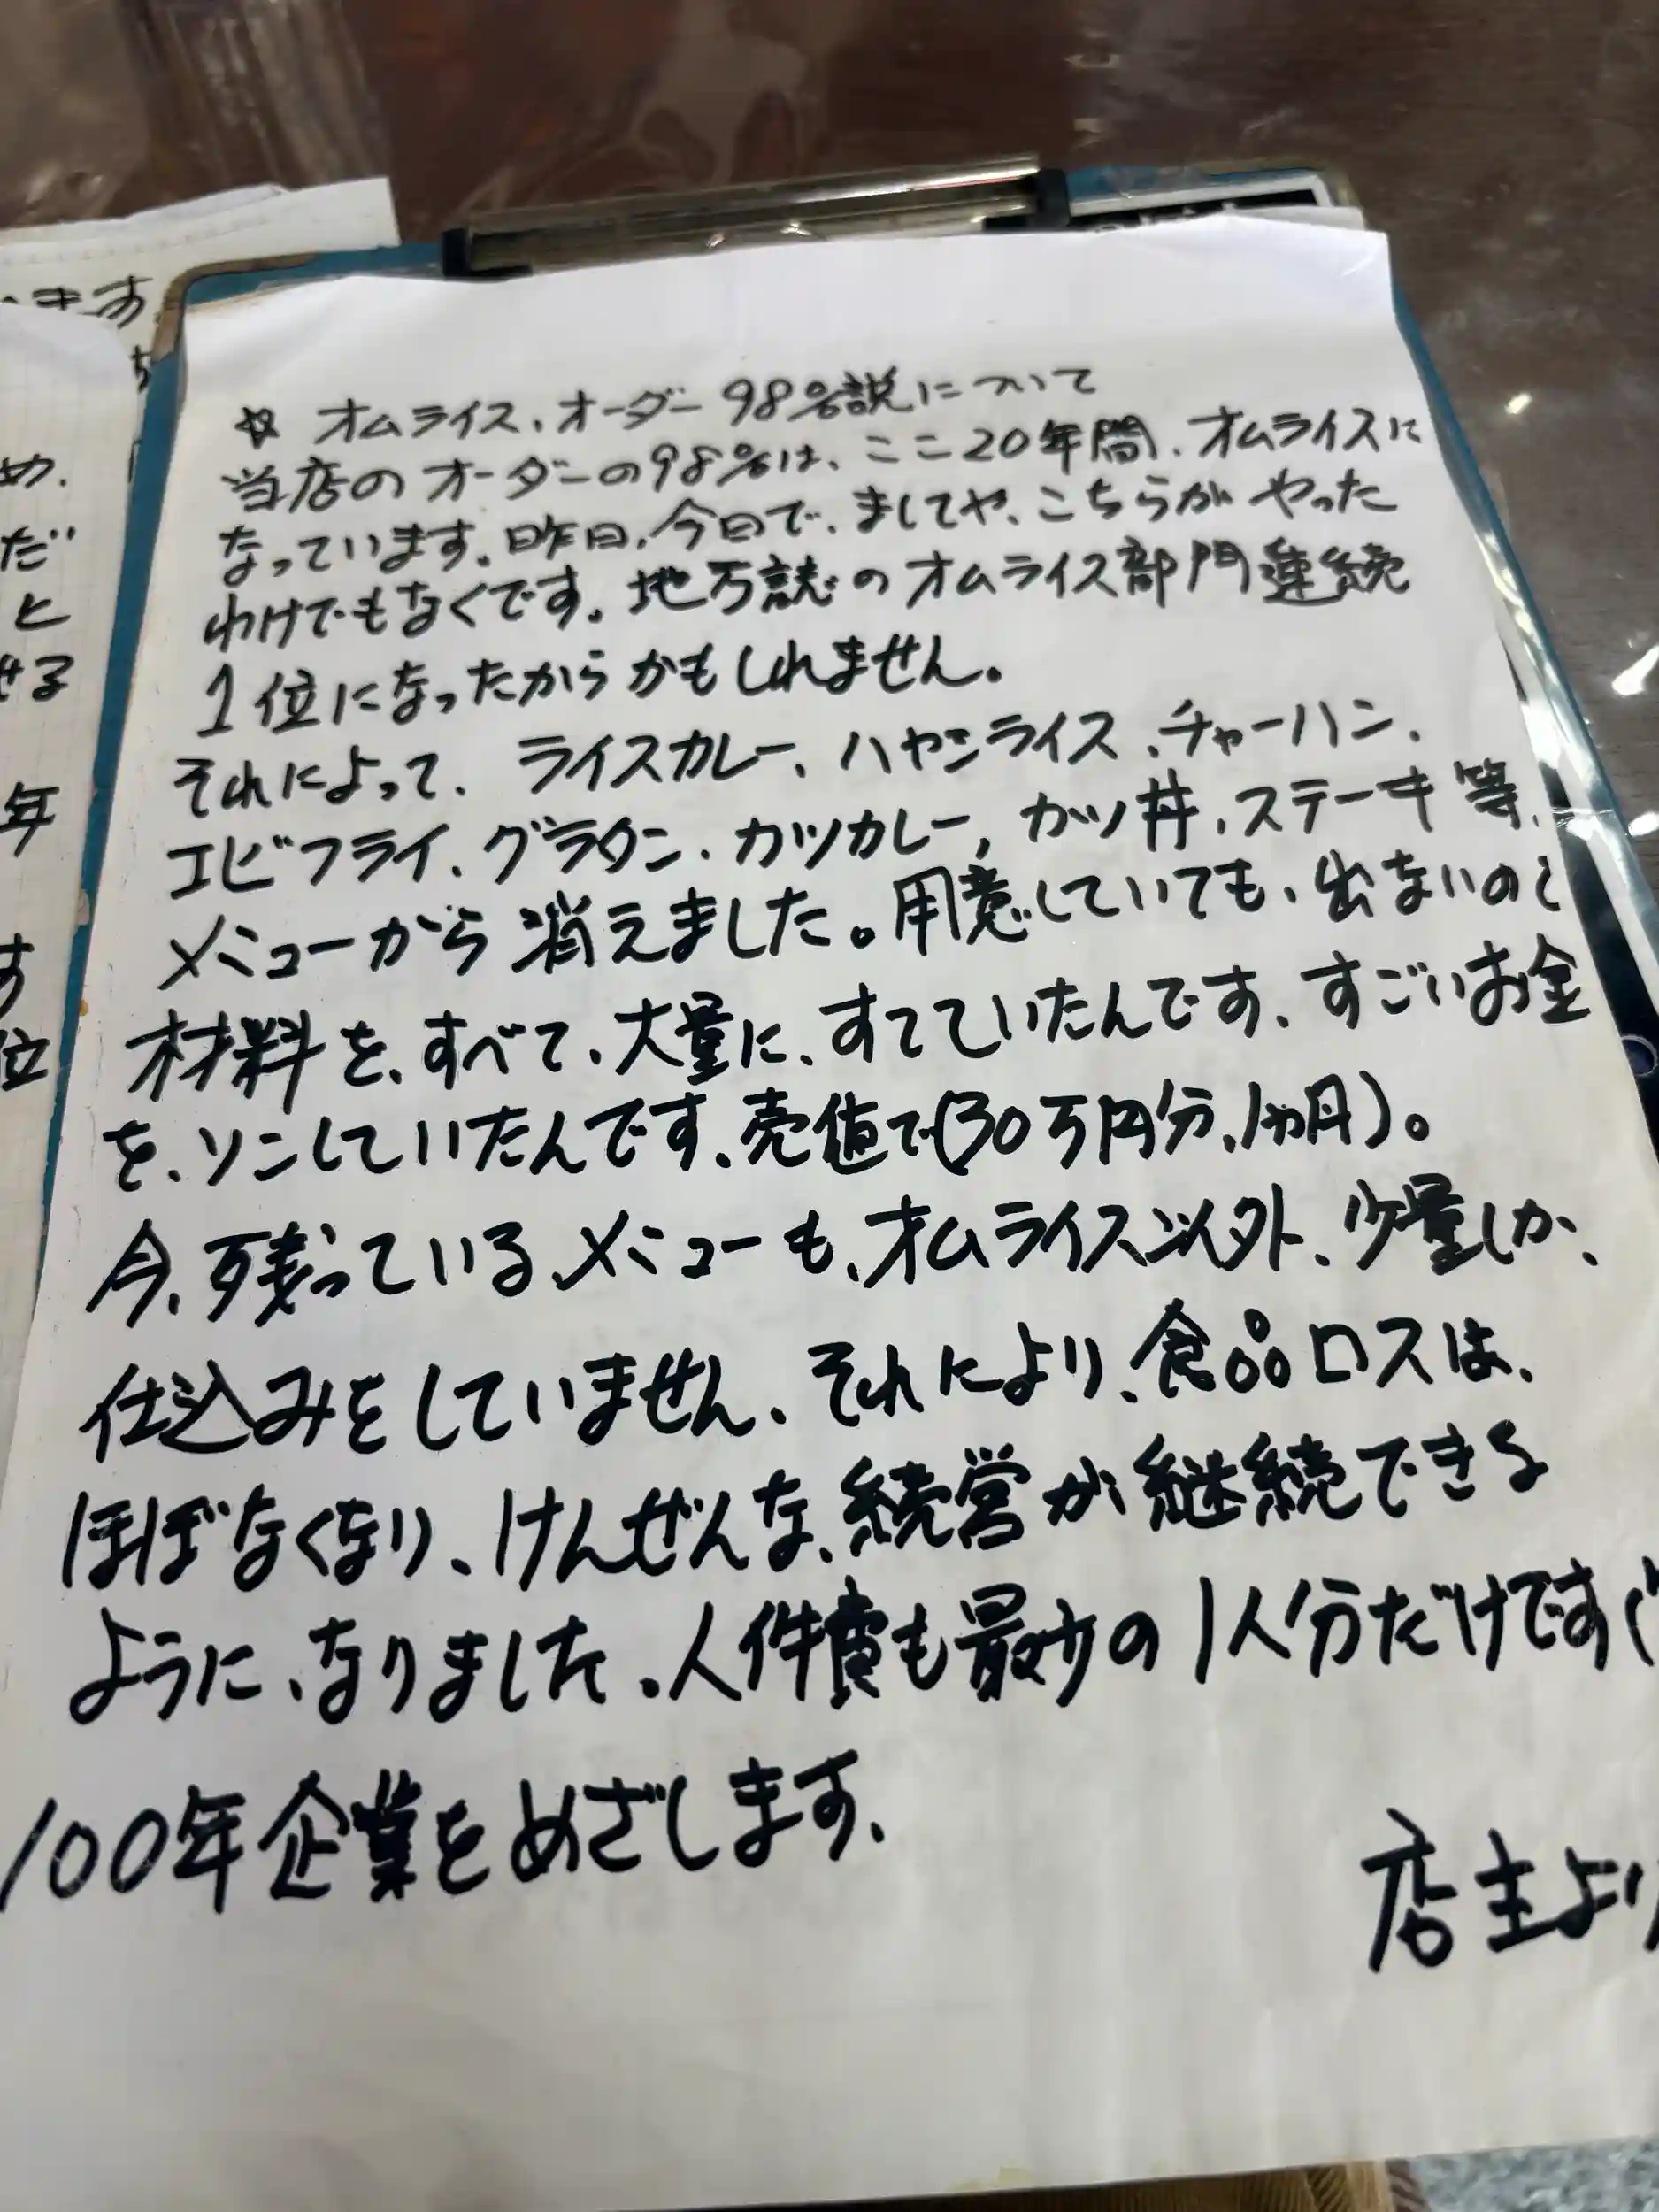 ☆ オムライス、オーダー98%説について
当店のオーダーの98%は、ここ20年間、オムライスに
なっています。昨日、今日で、ましてや、こちらがやった
わけでもなくです。地方誌のオムライス部門連続
1位になったからかもしれません。
それによって、ライスカレー、ハヤシライス、チャーハン、
エビフライ、グラタン、カツカレー、カツ丼、ステーキ等、
メニューから消えました。用意していても、出ないので
材料を、すべて、大量に、すてていたんです、すごいお金
を、ソンしていたんです、売値で(30万円分、1ヵ月)。
今、残っているメニューも、オムライス以外、少量しか、
仕込みをしていません、それにより、食品ロスは、
ほぼなくなり、けんぜんな、続営が継続できる
ように、なりました。人件費も最少の1人分だけです(
100年企業をめざします、
店主より
きます
め、
だ
と
せる
年
す
位